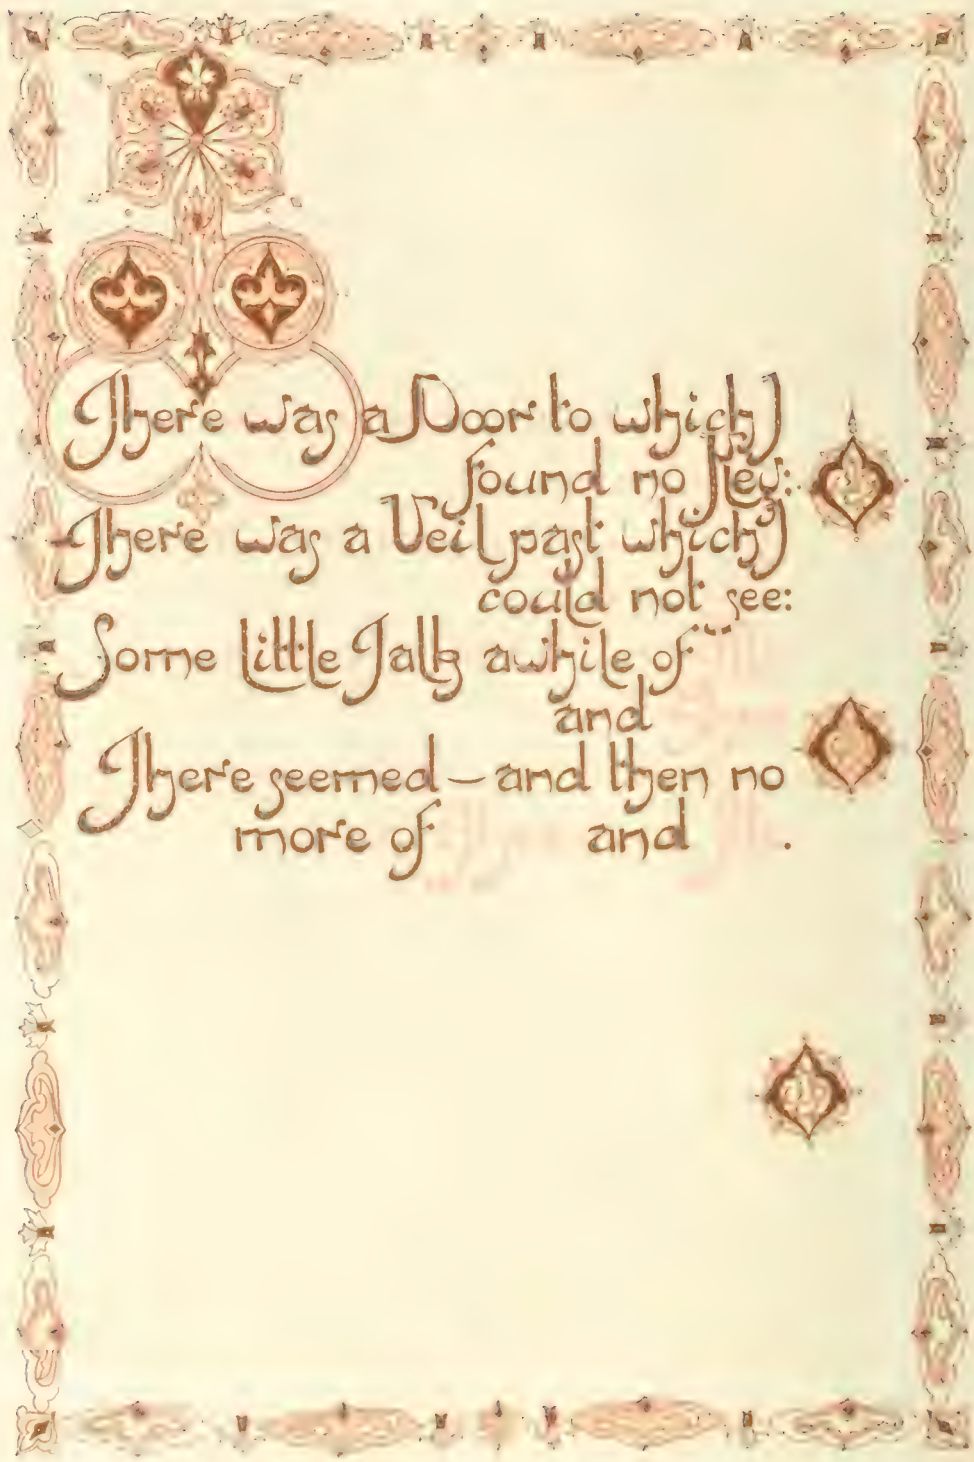 There was a Door to which I
found no Key:
There was a Veil past which I
could not see:
Some little Talk awhile of
and
There seemed — and then no
more of and .